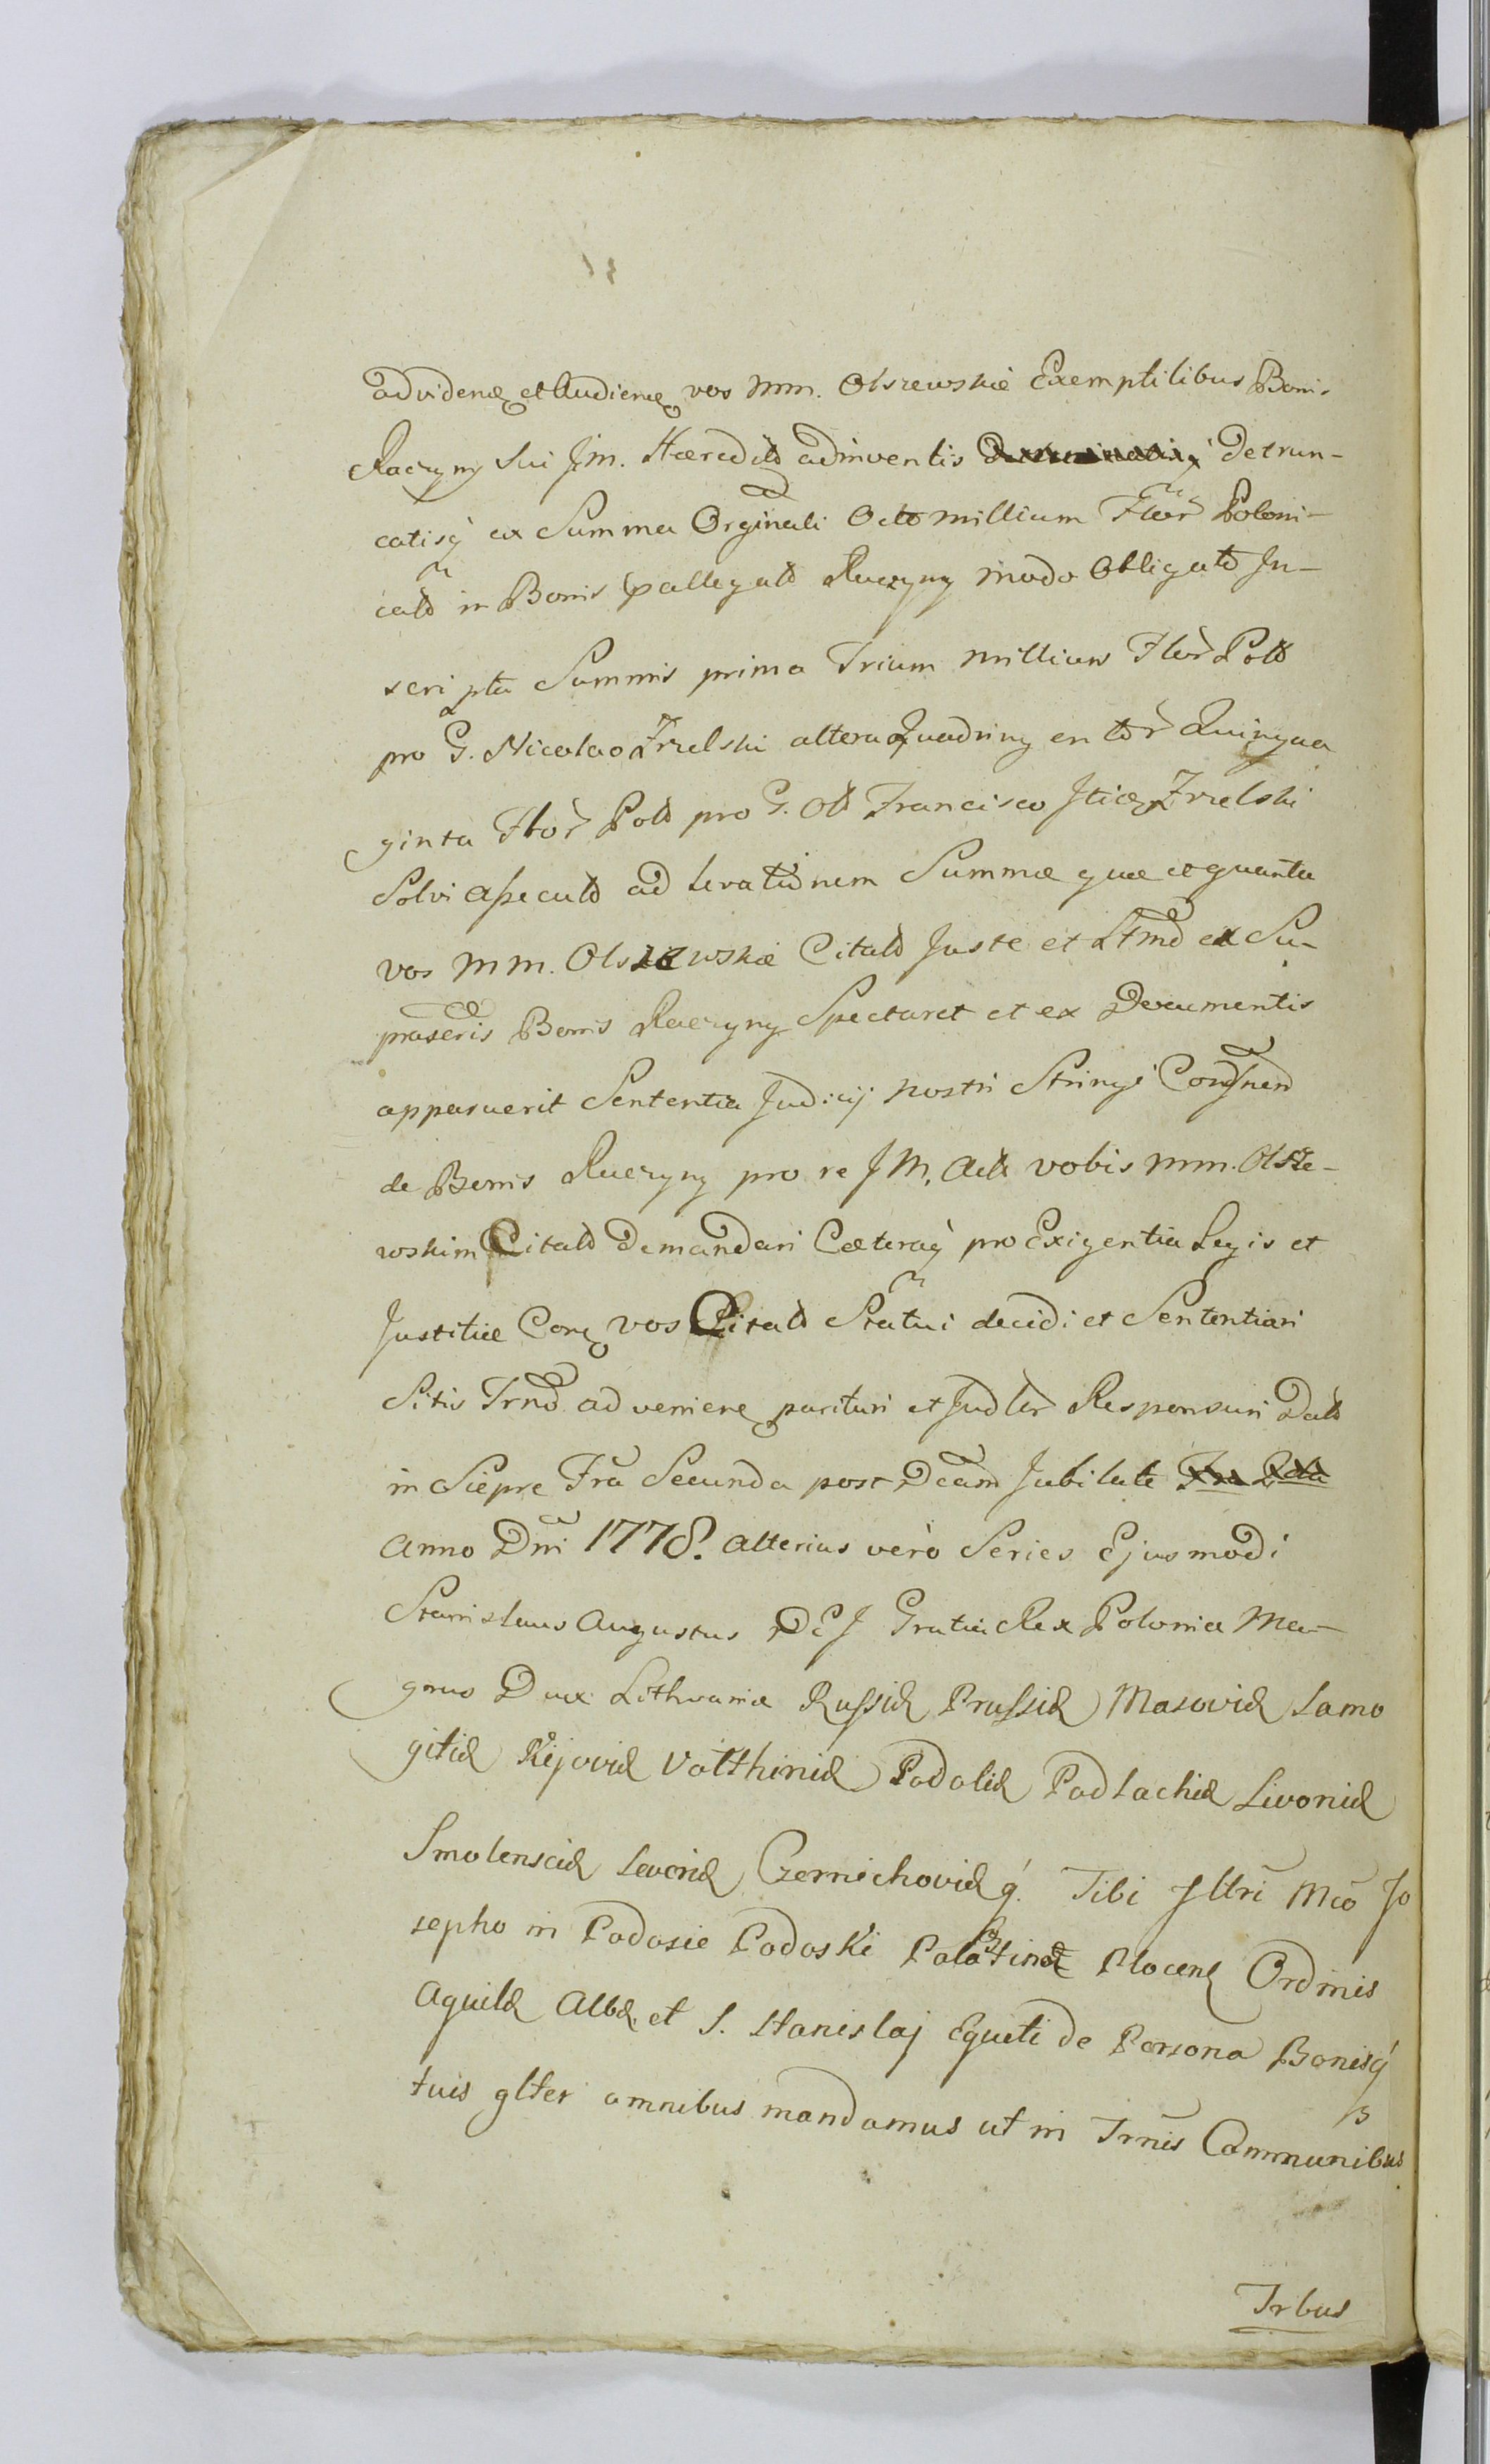 ad videnđ et Audienđ vos MM. Olszewskie Exemptilibus Bonis
Raczyny sui JM. Hæredit adinventis Detrun-
catisq́ ex Summa Orginali Octo millium Flõr Poloni-
cald in Bonis pallegald Raczyny modo Obligatd In-
scripta Summis prima Trium Millium Flor Pold
pro G. Nicolao Zrzelski altera Quadringentor Quinqua
ginta Flor Pold pro G. Old Francisco Itidẽ Zrzelski
Solvi asseculd ad levationem Summæ quæ et quanta
vos MM. Olszewskie Citald Juste et Ltmẽ ex Su-
praseris Bonis Raczyny Spectaret et ex Documentis
apparuerit Sententia Judicij nostri
de Bonis Raczyny pro re JM. Act vobis MM. Olsze-
wskim Citald Demandari Cæteraq́ pro Exigentia Legis et
Justitiæ Conđ vos Citald Statui decidi et Sententiari
Sitis Trnđ ad venienđ parituri et Judler Responsuri Datd
in Siepre Fra Secunda post Dcam Jubilate
Anno Dni 1778. Alterius verò Series Ejusmodi
Stanislaus Augustus DEJ Gratia Rex Poloniæ Ma-
gnus Dux Lithvaniæ Russiæ Prussiæ Masoviæ Samo
gitiæ Kijoviæ Volhiniæ Podoliæ Podlachiæ Livoniæ
Smolensciæ Severiæ Czerniechoviæ q́. Tibi Jltri Mco Jo
sepho in Podosie Podoski Palatino Plocenſ Ordinis
Aquilæ Albæ et S. Stanislaj Equiti de Persona Bonisq́
tuis glter omnibus mandamus ut in Trnis Communibus
Trbus